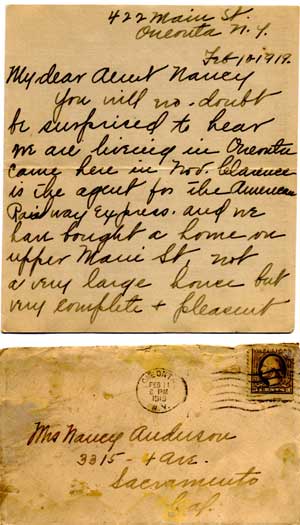 422 Main St.
Oneonta N.Y.
Feb 10 1919.
My dear Aunt Nancy
You will no-doubt
be surprised to hear
we are living in Oneonta
came here in Nov. Clarence
is the agent for the American
Railway Express. and we
have bought a home on
upper Main St. not
a very large house but
very complete + pleasent
ONEONTA
FEB 11
6 PM
1919
N.Y.
Mrs Nancy Anderson
3315 - 4 Ave.
Sacramento
Cal.